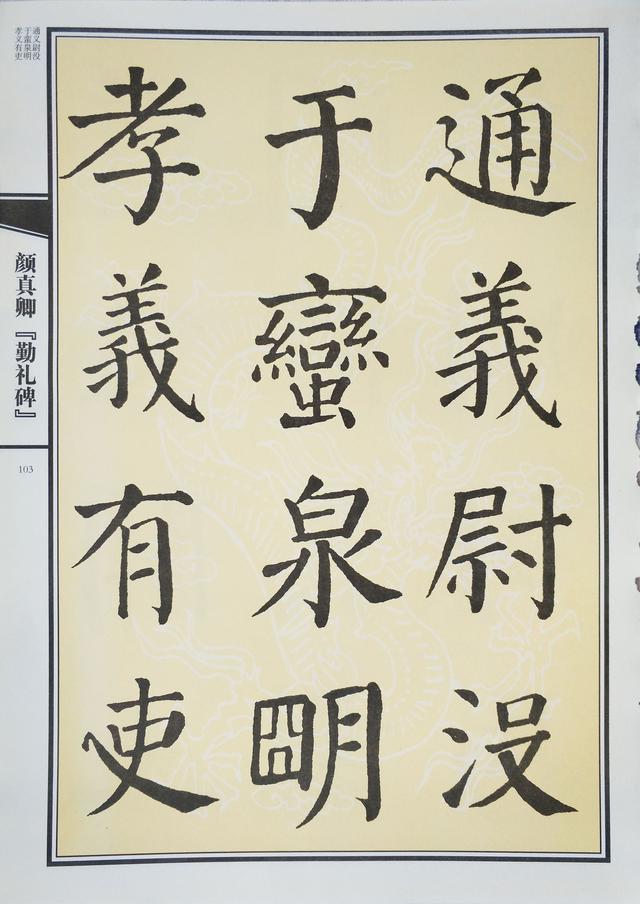 通義尉没
于蠻泉明
孝義有吏
通义尉没
于蛮泉明
孝义有吏
颜真卿『勤礼碑』
103